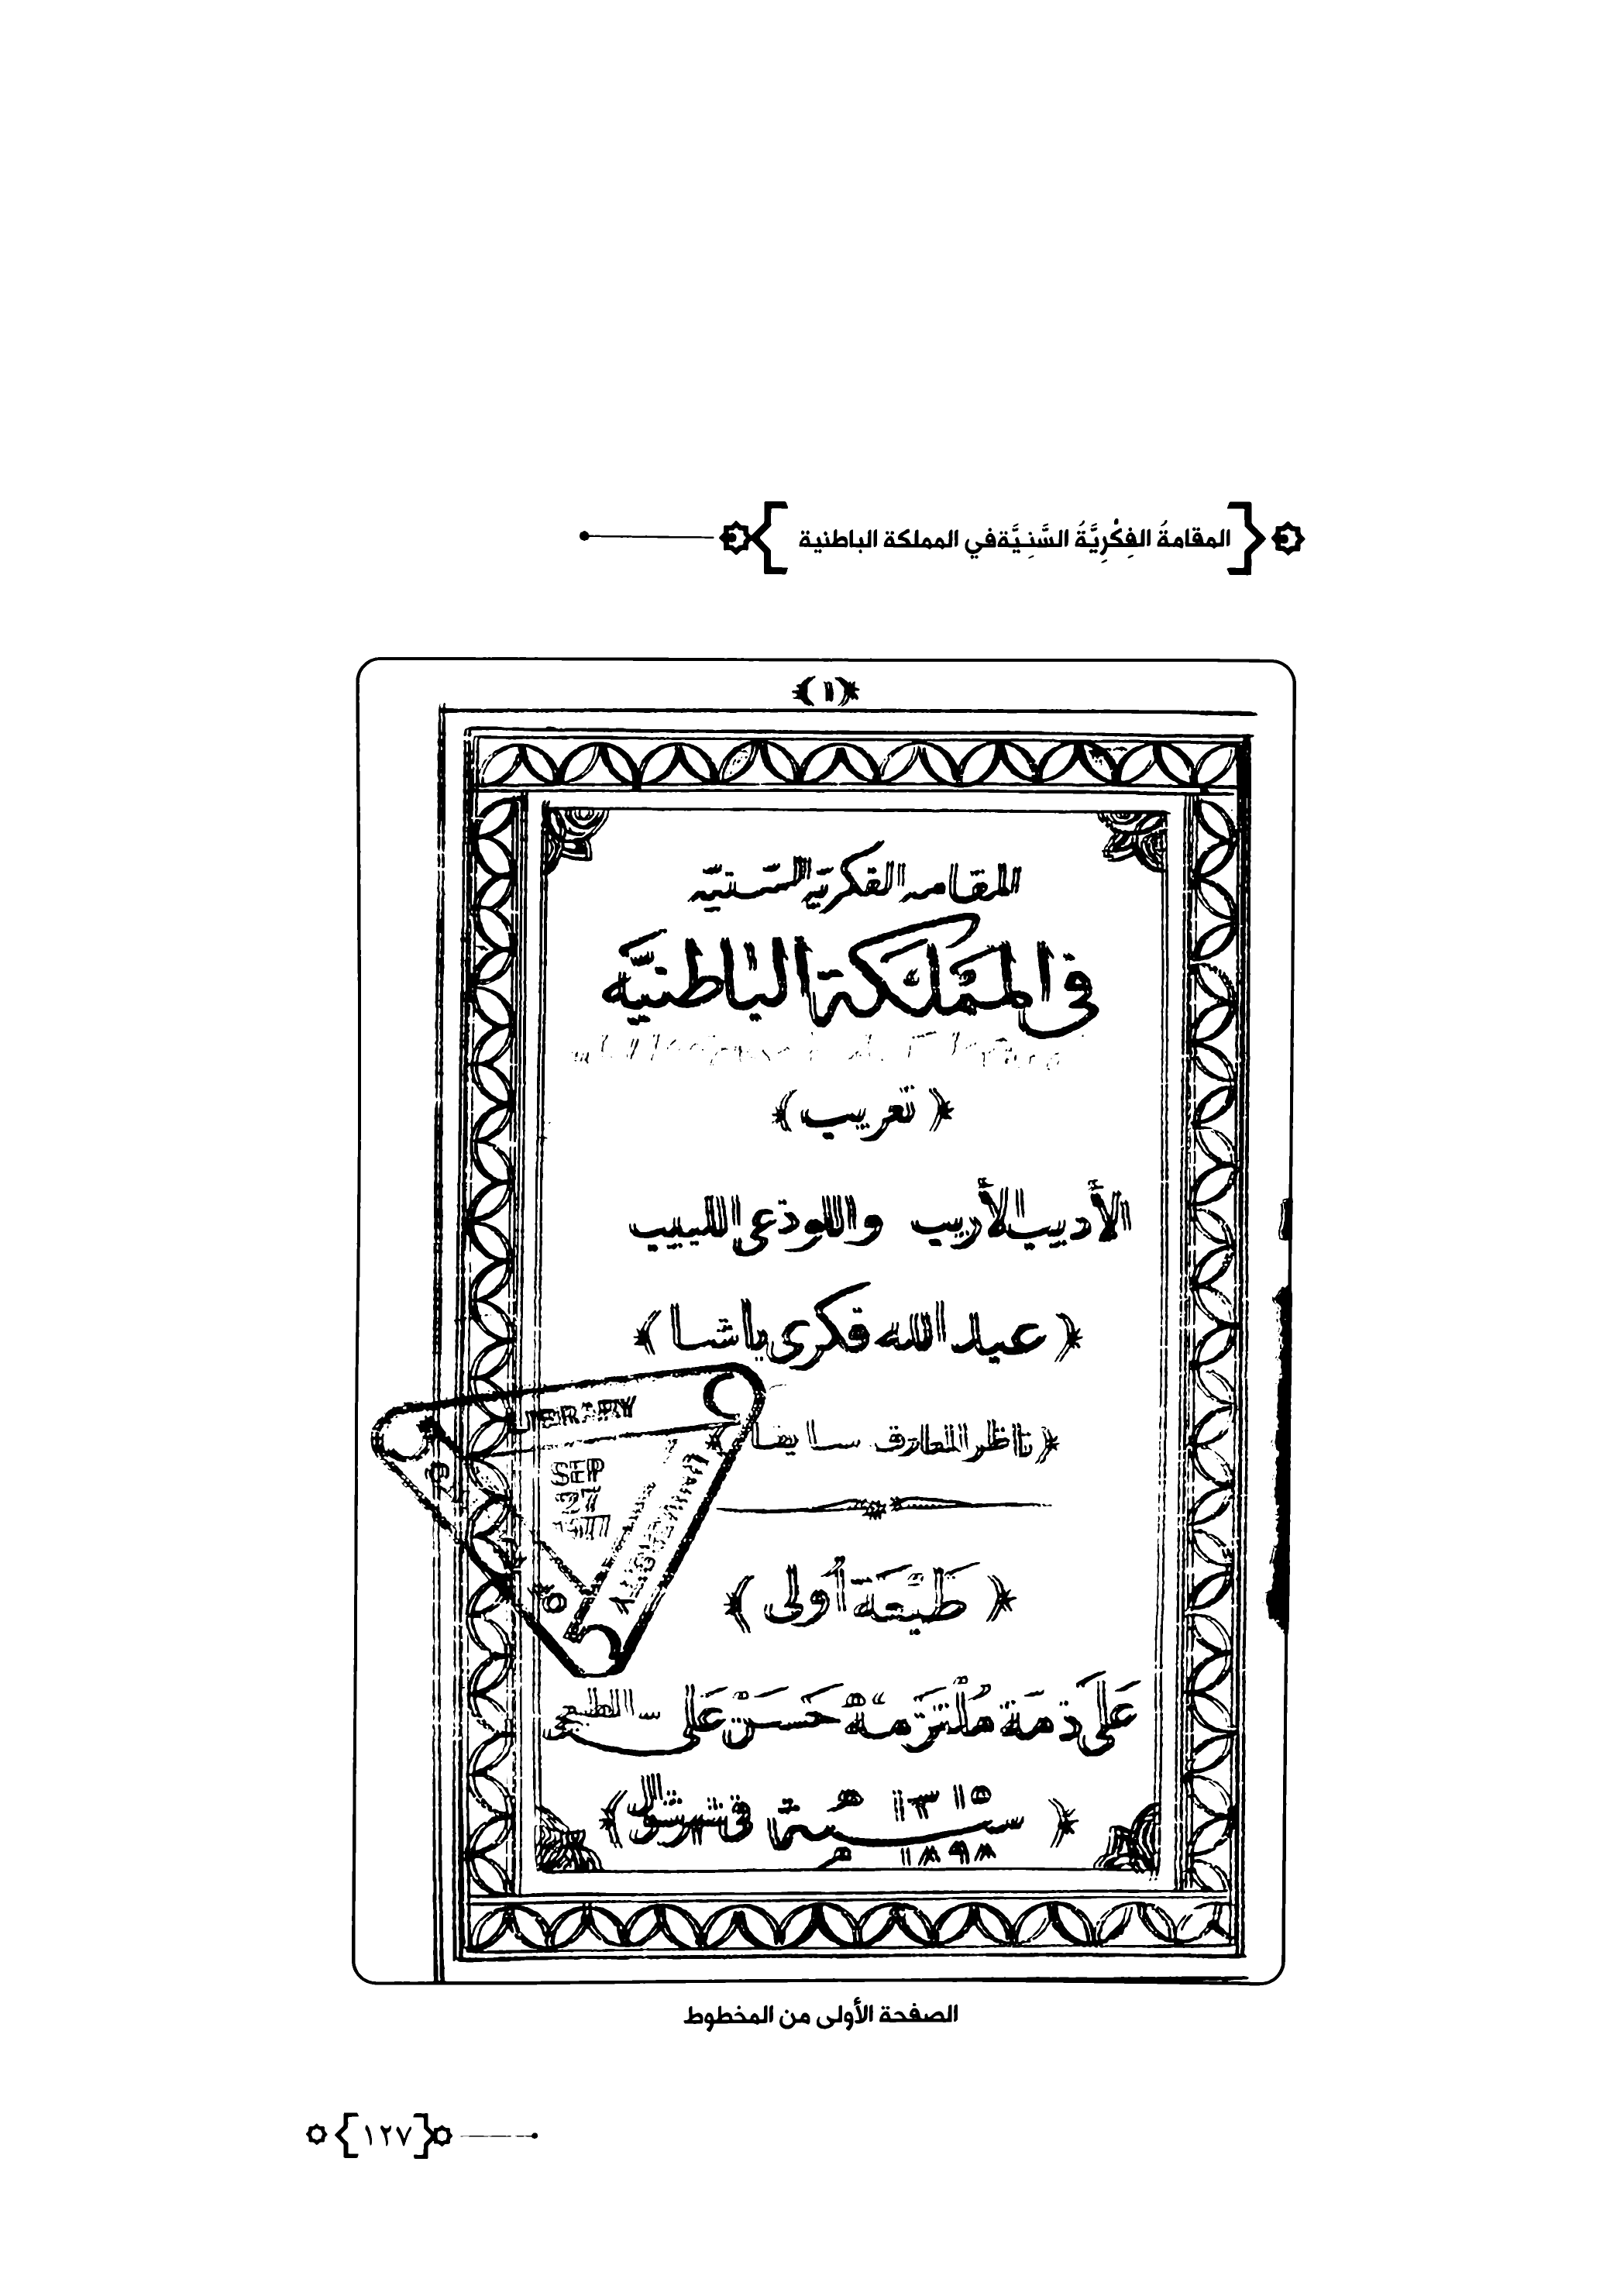 المقامةُ الفِكْرِيَّةُ السَّنِيَّةُ في المملكة الباطنية
﴿١﴾
المقامه الفكريّه السّنيّه
في المملكة الباطنيّه
﴿ تعريب ﴾
الأديب الأريب واللوذعى اللبيب
﴿ عبد الله فكرى باشا ﴾
﴿ ناظر المعارف سابقا ﴾
LIBRARY
SEP
27
﴿ طَبْعَة أولى ﴾
عَلَى ذمَة مُلْتَزمهُ حَسَنْ عَلى
﴿ سنة ١٣١٥ هـ فى شهر شوال ﴾
١٨٩٨ م
الصفحة الأولى من المخطوط
١٢٧